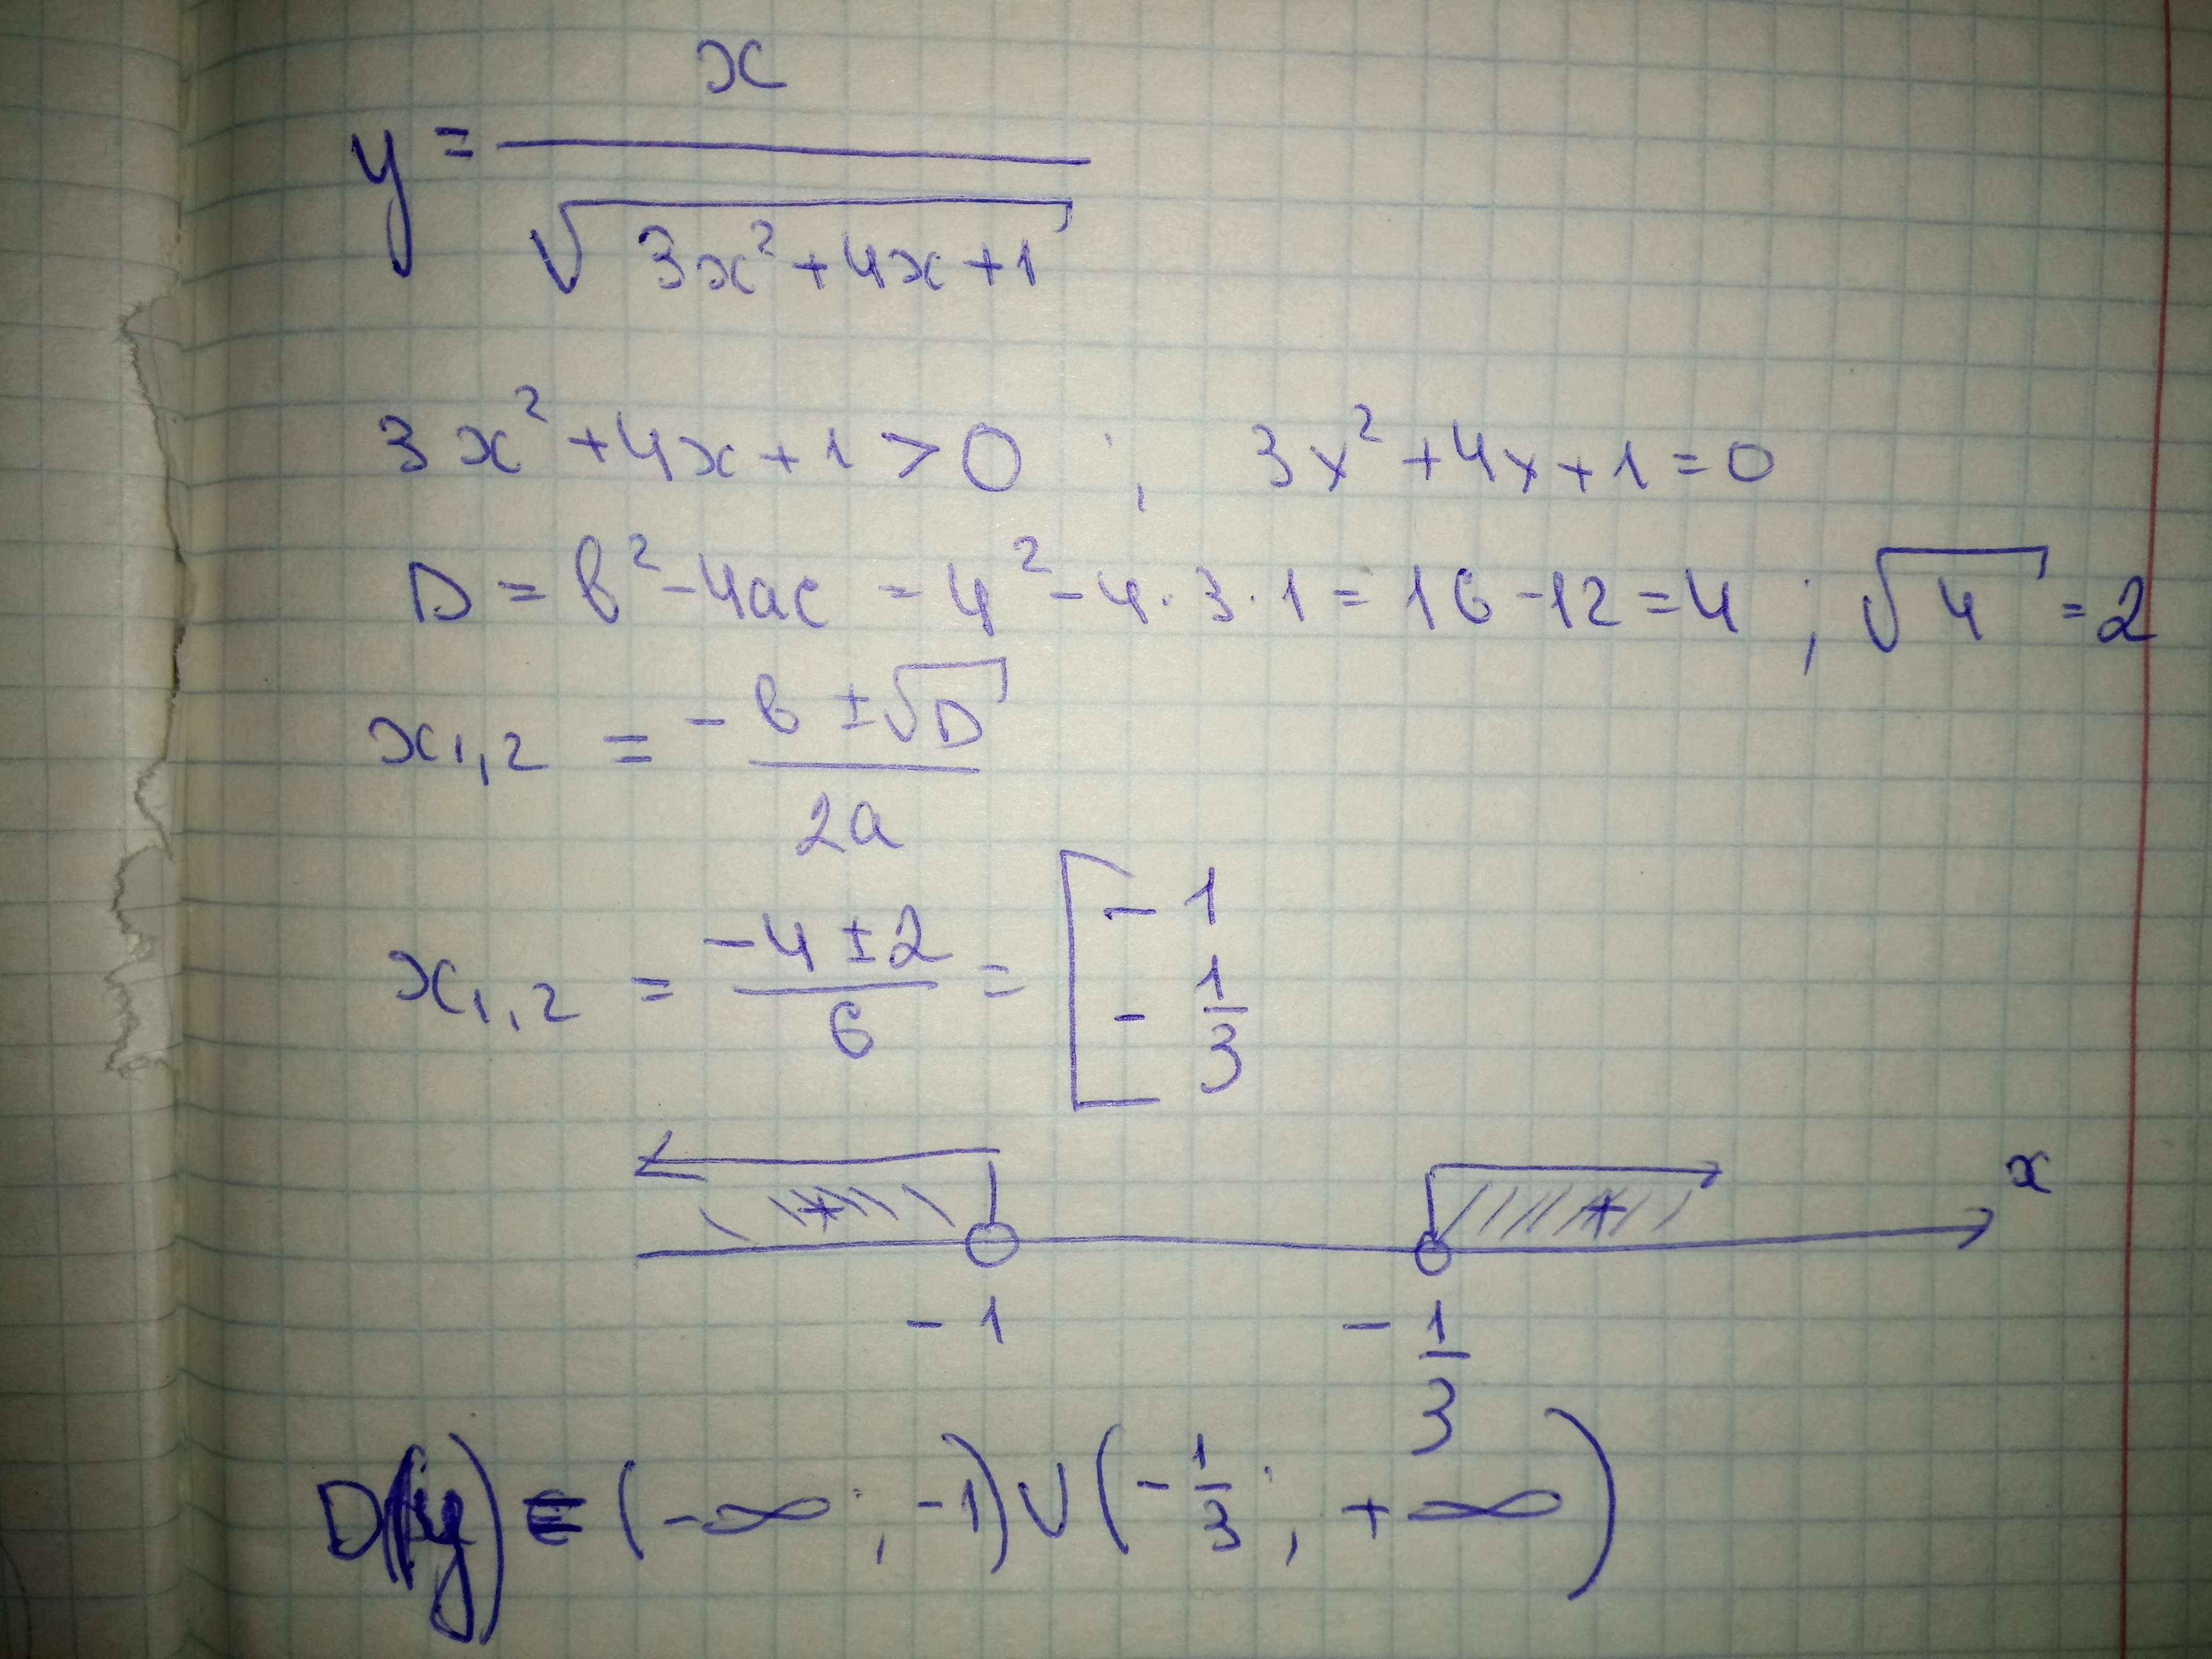 y = x / √(3x² + 4x + 1)
3x² + 4x + 1 > 0 ; 3x² + 4x + 1 = 0
D = b² - 4ac = 4² - 4 · 3 · 1 = 16 - 12 = 4 ; √4 = 2
x₁,₂ = (-b ± √D) / 2a
x₁,₂ = (-4 ± 2) / 6 = [ -1
- 1/3
+ + x
-1 - 1/3
D(y) = (-∞ ; -1) ∪ (- 1/3 ; +∞)